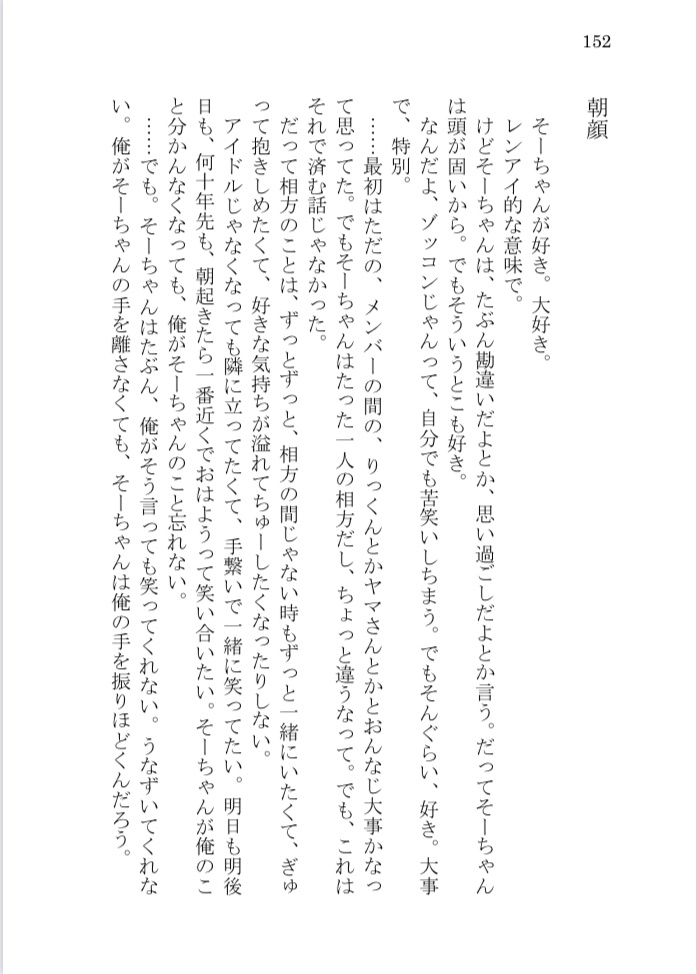 152
朝顔
そーちゃんが好き。大好き。
レンアイ的な意味で。
けどそーちゃんは、たぶん勘違いだよとか、思い過ごしだよとか言う。だってそーちゃん
は頭が固いから。でもそういうとこも好き。
なんだよ、ゾッコンじゃんって、自分でも苦笑いしちまう。でもそんぐらい、好き。大事
で、特別。
……最初はただの、メンバーの間の、りっくんとかヤマさんとかとおんなじ大事かなっ
て思ってた。でもそーちゃんはたった一人の相方だし、ちょっと違うなって。でも、これは
それで済む話じゃなかった。
だって相方のことは、ずっとずっと、相方の間じゃない時もずっと一緒にいたくて、ぎゅ
って抱きしめたくて、好きな気持ちが溢れてちゅーしたくなったりしない。
アイドルじゃなくなっても隣に立ってたくて、手繋いで一緒に笑ってたい。明日も明後
日も、何十年先も、朝起きたら一番近くでおはようって笑い合いたい。そーちゃんが俺のこ
と分かんなくなっても、俺がそーちゃんのこと忘れない。
……でも。そーちゃんはたぶん、俺がそう言っても笑ってくれない。うなずいてくれな
い。俺がそーちゃんの手を離さなくても、そーちゃんは俺の手を振りほどくんだろう。